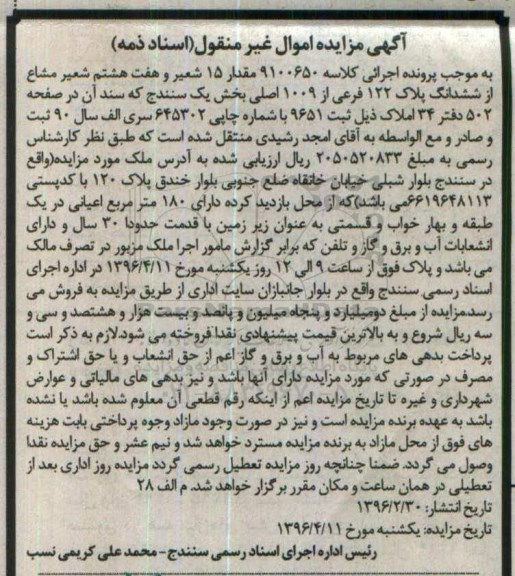 آگهی مزایده اموال غیر منقول(اسناد ذمه)
به موجب پرونده اجرائی کلاسه ۹۱۰۰۶۵۰ مقدار ۱۵ شعیر و هفت هشتم شعیر مشاع
از ششدانگ پلاک ۱۲۲ فرعی از ۱۰۰۹ اصلی بخش یک سنندج که سند آن در صفحه
۵۰۲ دفتر ۳۴ املاک ذیل ثبت ۹۶۵۱ با شماره چاپی ۶۴۵۳۰۲ سری الف سال ۹۰ ثبت
و صادر و مع الواسطه به آقای امجد رشیدی منتقل شده است که طبق نظر کارشناس
رسمی به مبلغ ۲۰۵۰۵۲۰۸۳۳ ریال ارزیابی شده به آدرس ملک مورد مزایده(واقع
در سنندج بلوار شبلی خیابان خانقاه ضلع جنوبی بلوار خندق پلاک ۱۲۰ با کدپستی
۶۶۱۹۶۴۸۱۱۳می باشد)که از محل بازدید کرده دارای ۱۸۰ متر مربع اعیانی در یک
طبقه و بهار خواب و قسمتی به عنوان زیر زمین با قدمت حدودا ۳۰ سال و دارای
انشعابات آب و برق و گاز و تلفن که برابر گزارش مامور اجرا ملک مزبور در تصرف مالک
می باشد و پلاک فوق از ساعت ۹ الی ۱۲ روز یکشنبه مورخ ۱۳۹۶/۴/۱۱ در اداره اجرای
اسناد رسمی سنندج واقع در بلوار جانبازان سایت اداری از طریق مزایده به فروش می
رسدمزایده از مبلغ دومیلیارد و پنجاه میلیون و پانصد و بیست هزار و هشتصد و سی و
سه ریال شروع و به بالاترین قیمت پیشنهادی نقدا فروخته می شود.لازم به ذکر است
پرداخت بدهی های مربوط به آب و برق و گاز اعم از حق انشعاب و یا حق اشتراک و
مصرف در صورتی که مورد مزایده دارای آنها باشد و نیز بدهی های مالیاتی و عوارض
شهرداری و غیره تا تاریخ مزایده اعم از اینکه رقم قطعی آن معلوم شده باشد یا نشده
باشد به عهده برنده مزایده است و نیز در صورت وجود مازاد وجوه پرداختی بابت هزینه
های فوق از محل مازاد به برنده مزایده مسترد خواهد شد و نیم عشر و حق مزایده نقدا
وصول می گردد. ضمنا چنانچه روز مزایده تعطیل رسمی گردد مزایده روز اداری بعد از
تعطیلی در همان ساعت و مکان مقرر برگزار خواهد شد. م الف ۲۸
تاریخ انتشار: ۱۳۹۶/۲/۳۰
تاریخ مزایده: یکشنبه مورخ ۱۳۹۶/۴/۱۱
رئیس اداره اجرای اسناد رسمی سنندج- محمد علی کریمی نسب